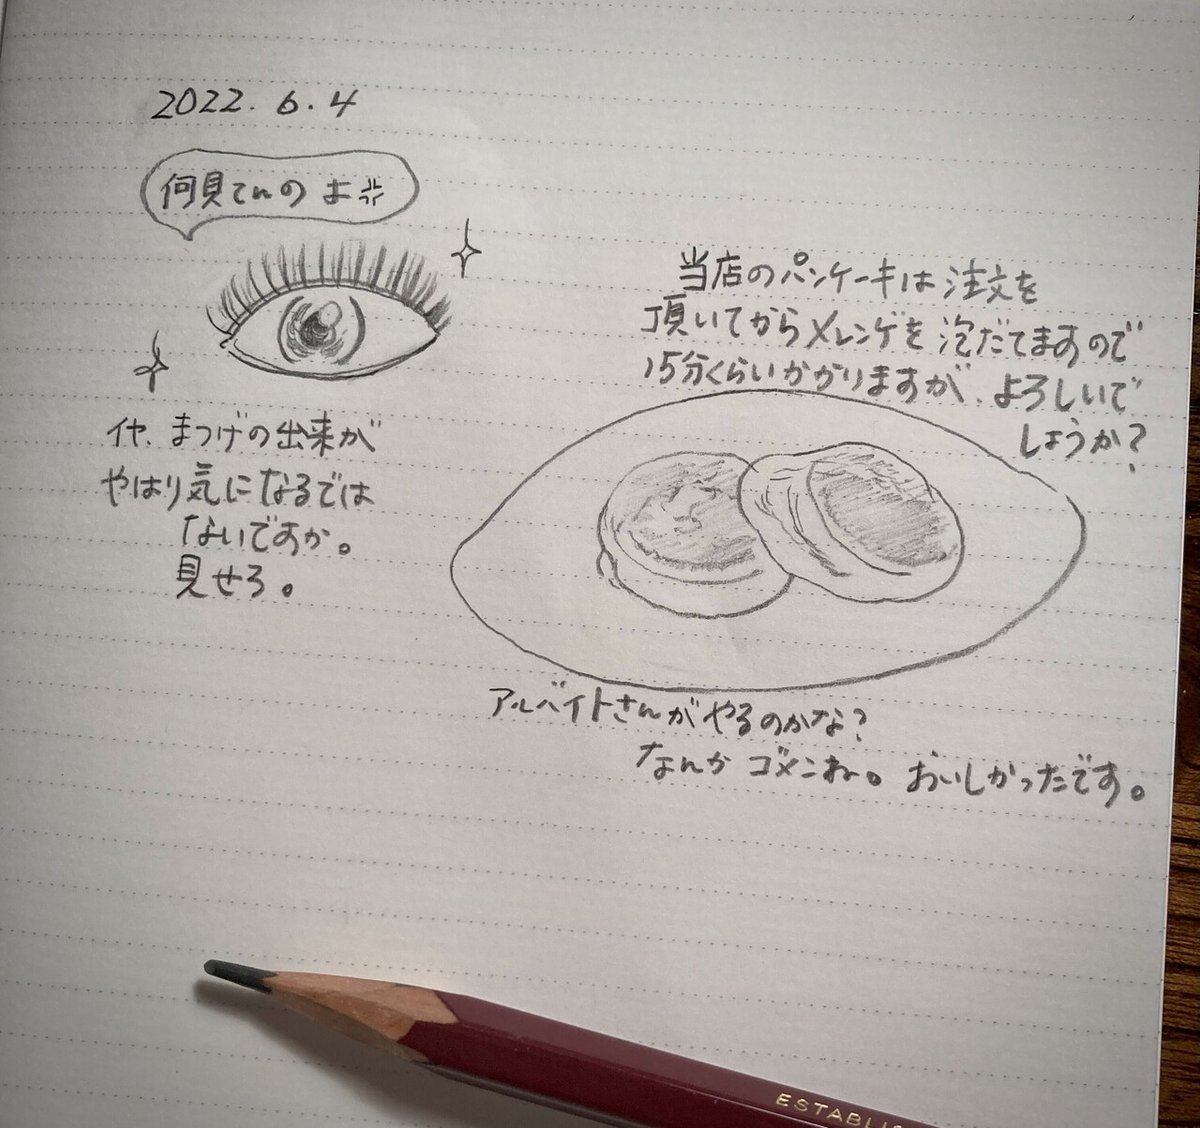 2022.6.4
何見てんのよ
イヤ、まつげの出来が
やはり気になるでは
ないですか。
見せろ。
当店のパンケーキは注文を
頂いてからメレンゲを泡だてますので
15分くらいかかりますが、よろしいで
しょうか?
アルバイトさんがやるのかな?
なんかゴメンね。おいしかったです。
ESTABLIS